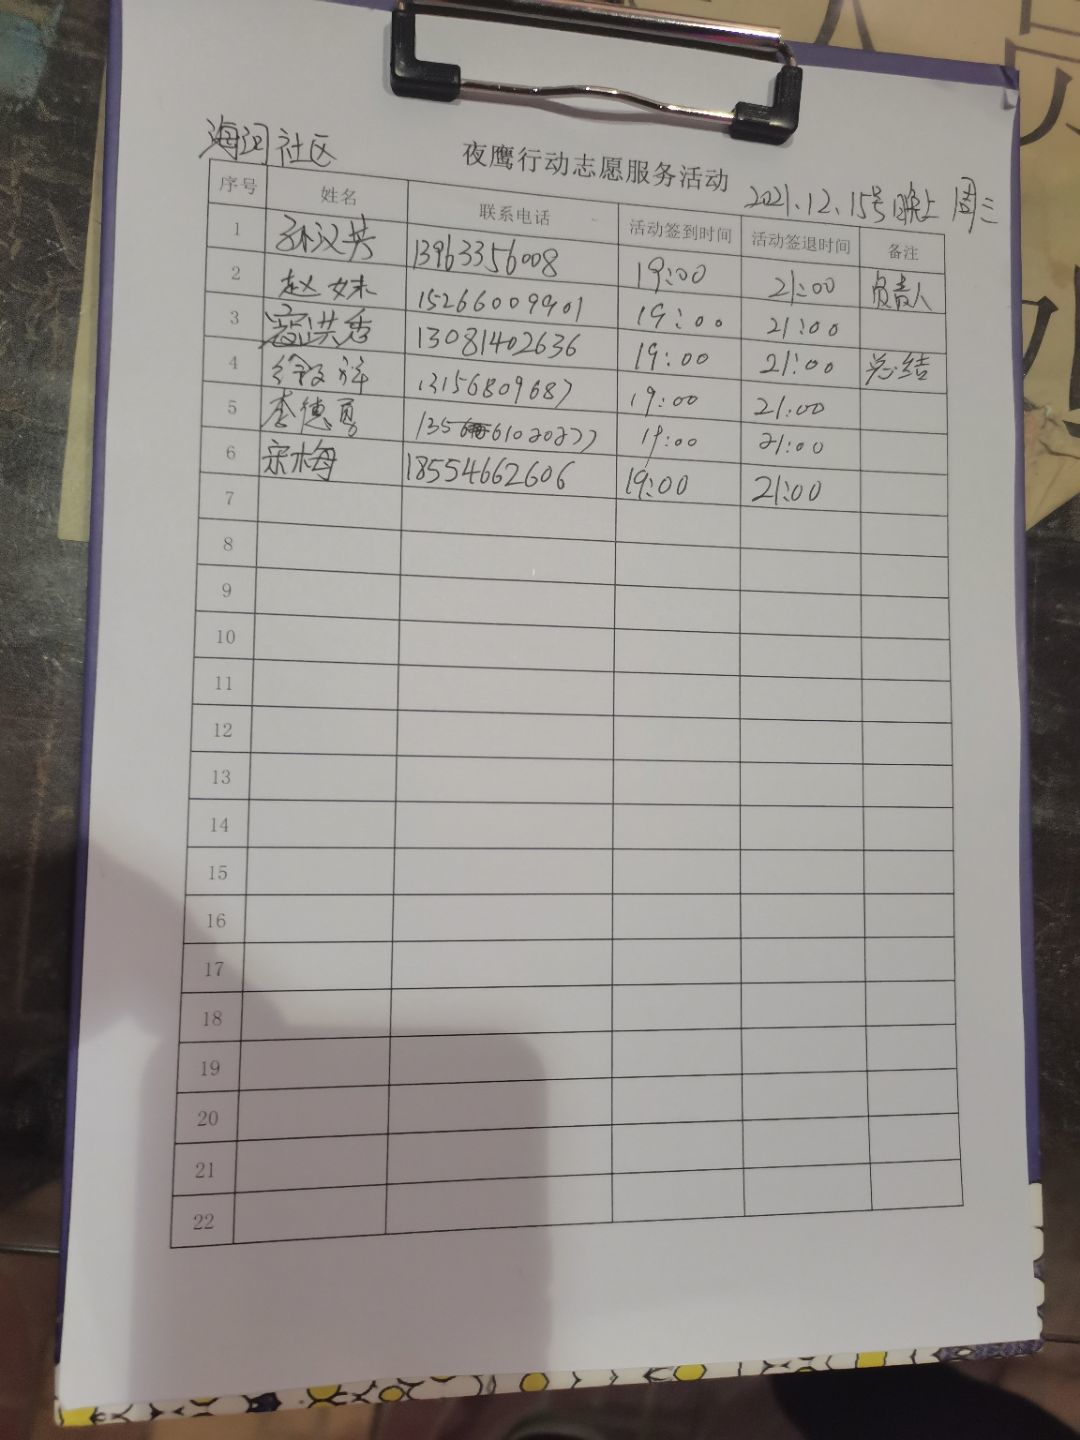 海河社区
夜鹰行动志愿服务活动
2021.12.15号晚上 周三
序号 姓名 联系电话 活动签到时间 活动签退时间 备注
1 孙汉芳 13963356008 19:00 21:00 负责人
2 赵妹 15266009901 19:00 21:00
3 寇洪香 13081402636 19:00 21:00 总结
4 徐敬祥 13156809687 19:00 21:00
5 李德勇 13561020277 19:00 21:00
6 宋梅 18554662606 19:00 21:00
7
8
9
10
11
12
13
14
15
16
17
18
19
20
21
22